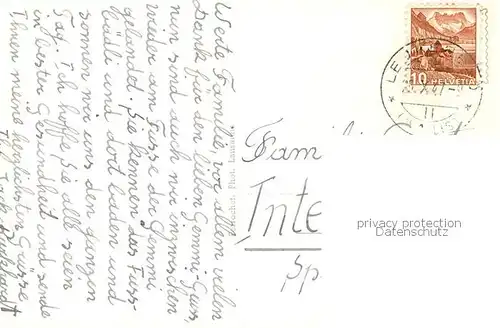 Werte Familie, vor allem vielen
Dank für den lieben Gemmi-Gruss,
nun sind auch wir inzwischen
wieder am Fusse der Gemmi
gelandet. Sie kennen das Fuss-
bädli und dort baden und
sonnen wir uns den ganzen
Tag. Ich hoffe Sie alle seien
in bester Gesundheit und sende
Ihnen meine herzlichsten Grüsse
Phot.
Fam
Inte
Sp
10 HELVETIA
LE
II
privacy protection
Datenschutz